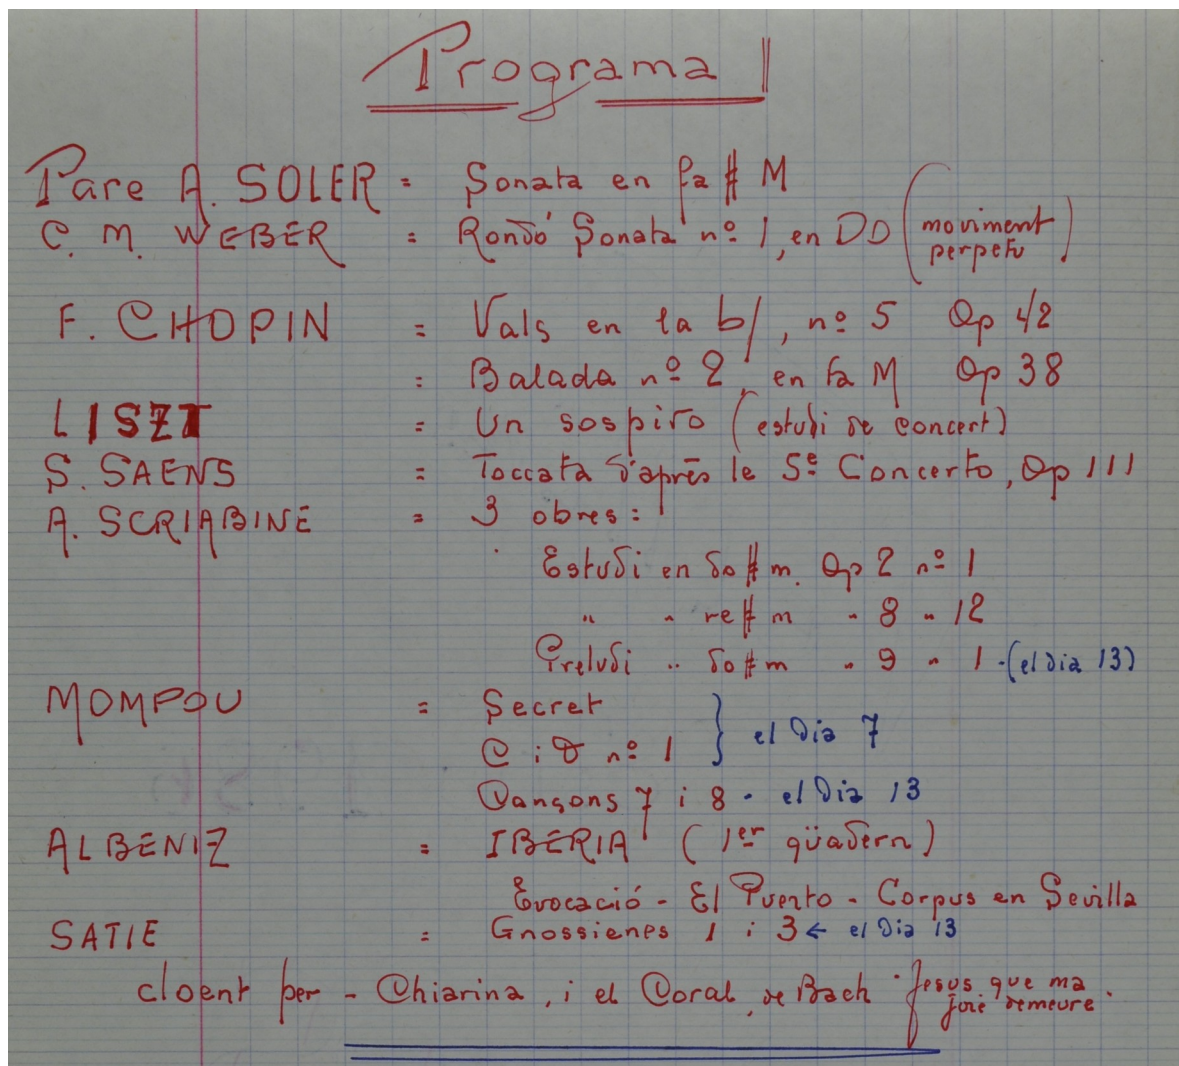 Programa I
Pare A. SOLER = Sonata en fa # M
C. M. WEBER = Rondó Sonata nº 1, en DO (moviment perpetu)
F. CHOPIN = Vals en la b/, nº 5 Op 42
= Balada nº 2, en fa M Op 38
LISZT = Un sospiro (estudi de concert)
S. SAENS = Toccata d'après le 5è Concerto, Op 111
A. SCRIABINE = 3 obres:
Estudi en do # m. Op 2 nº 1
" " re # m " 8 " 12
Preludi " do # m " 9 " 1 - (el dia 13)
MOMPOU = Secret
C i D nº 1 } el dia 7
Cançons 7 i 8 - el dia 13
ALBENIZ = IBERIA (1er qüadern)
Evocació - El Puerto - Corpus en Sevilla
SATIE = Gnossienes 1 i 3 ← el dia 13
cloent per - Chiarina, i el Coral, de Bach "Jesus que ma joie demeure.